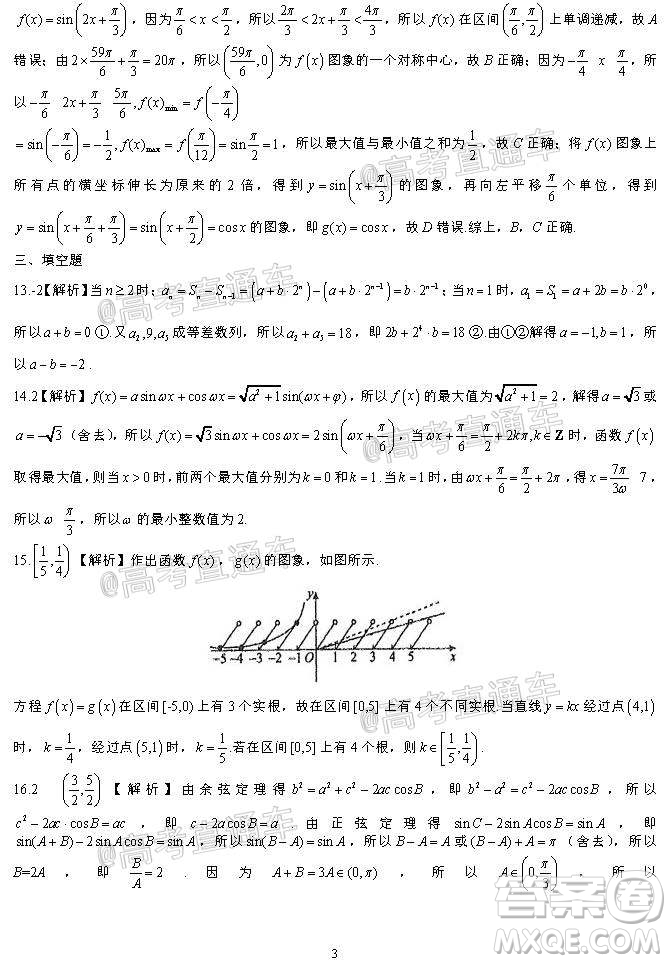 f(x)=sin(2x+π/3)，因为π/6<x<π/2，所以2π/3<2x+π/3<4π/3，所以 f(x)在区间(π/6,π/2)上单调递减，故 A
错误；由2×59π/6+π/3=20π，所以(59π/6,0)为 f(x)图象的一个对称中心，故 B 正确；因为-π/4 x π/4，所
以-π/6 2x+π/3 5π/6, f(x)min=f(-π/4)
=sin(-π/6)=-1/2, f(x)max=f(π/12)=sinπ/2=1，所以最大值与最小值之和为1/2，故 C 正确；将 f(x)图象上
所有点的横坐标伸长为原来的 2 倍，得到 y=sin(x+π/3)的图象，再向左平移π/6个单位，得到
y=sin(x+π/6+π/3)=sin(x+π/2)=cosx的图象，即 g(x)=cosx，故 D 错误.综上，B，C 正确.
三、填空题
13.-2【解析】当n≥2时；aₙ=Sₙ-Sₙ₋₁=(a+b·2ⁿ)-(a+b·2ⁿ⁻¹)=b·2ⁿ⁻¹；当n=1时，a₁=S₁=a+2b=b·2⁰，
所以a+b=0 ①.又a₂,9,a₅成等差数列，所以a₂+a₅=18，即 2b+2⁴·b=18 ②.由①②解得a=-1,b=1，所
以a-b=-2 .
14.2【解析】f(x)=asinωx+cosωx=√(a²+1)sin(ωx+φ)，所以 f(x)的最大值为√(a²+1)=2，解得a=√3或
a=-√3（含去），所以 f(x)=√3sinωx+cosωx=2sin(ωx+π/6)，当ωx+π/6=π/2+2kπ,k∈Z时，函数 f(x)
取得最大值，则当x>0时，前两个最大值分别为k=0和k=1.当k=1时，由ωx+π/6=π/2+2π，得x=7π/3ω 7，
所以ω π/3，所以ω的最小整数值为 2.
15.[1/5,1/4)【解析】作出函数 f(x)，g(x)的图象，如图所示.
y
-5 -4 -3 -2 -1 O 1 2 3 4 5 x
方程 f(x)=g(x)在区间[-5,0)上有 3 个实根，故在区间[0,5]上有 4 个不同实根.当直线 y=kx经过点(4,1)
时，k=1/4，经过点(5,1)时，k=1/5.若在区间[0,5]上有 4 个根，则k∈[1/5,1/4).
16.2 (3/2,5/2)【解析】由余弦定理得b²=a²+c²-2accosB，即b²-a²=c²-2accosB，所以
c²-2ac·cosB=ac，即c-2acosB=a.由正弦定理得sinC-2sinAcosB=sinA，即
sin(A+B)-2sinAcosB=sinA，所以sin(B-A)=sinA，所以B-A=A或(B-A)+A=π（含去），所以
B=2A，即B/A=2.因为A+B=3A∈(0,π)，所以A∈(0,π/3)，所以
3
@高考直通车
@高考直通车
@高考直通车
@高考直通车
答案圈
MXQE.COM